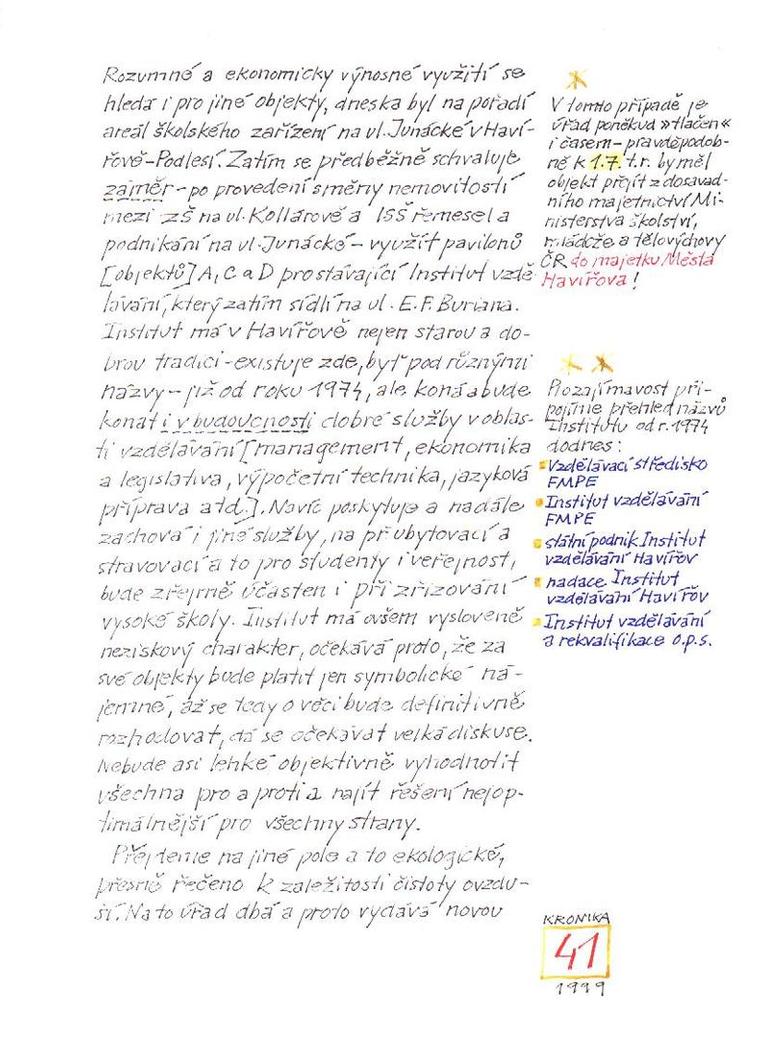 Rozumné a ekonomicky výnosné využití se
hledá i pro jiné objekty, dneska byl na pořadí
areál školského zařízení na ul. Junácké v Haví-
řově-Podlesí. Zatím se předběžně schvaluje
záměr - po provedení směny nemovitostí
mezi ZŠ na ul. Kollárově a ISŠ řemesel a
podnikání na ul. Junácké - využít pavilonů
[objektů] A, C a D pro stávající Institut vzdě-
lávání, který zatím sídlí na ul. E. F. Buriana.
Institut má v Havířově nejen starou a do-
brou tradici - existuje zde, byť pod různými
názvy - již od roku 1974, ale koná a bude
konat i v budoucnosti dobré služby v oblas-
ti vzdělávání [management, ekonomika
a legislativa, výpočetní technika, jazyková
příprava atd.]. Navíc poskytuje a nadále
zachová i jiné služby, na př. ubytovací a
stravovací a to pro studenty i veřejnost,
bude zřejmě účasten i při zřizování
vysoké školy. Institut má ovšem vysloveně
neziskový charakter, očekává proto, že za
své objekty bude platit jen symbolické ná-
jemné, až se tedy o věci bude definitivně
rozhodovat, dá se očekávat velká diskuse.
Nebude asi lehké objektivně vyhodnotit
všechna pro a proti a najít řešení nejop-
timálnější pro všechny strany.
Přejdeme na jiné pole a to ekologické,
přesně řečeno k záležitosti čistoty ovzdu-
ší. Na to úřad dbá a proto vydává novou
V tomto případě je
úřad poněkud »tlačen«
i časem - pravděpodob-
ně k 1.7. t.r. by měl
objekt přejít z dosavad-
ního majetnictví Mi-
nisterstva školství,
mládeže a tělovýchovy
ČR do majetku Města
Havířova!
Pro zajímavost při-
pojíme přehled názvů
Institutu od r. 1974
dodnes:
Vzdělávací středisko
FMPE
Institut vzdělávání
FMPE
státní podnik Institut
vzdělávání Havířov
nadace Institut
vzdělávání Havířov
Institut vzdělávání
a rekvalifikace o.p.s.
KRONIKA
41
1999